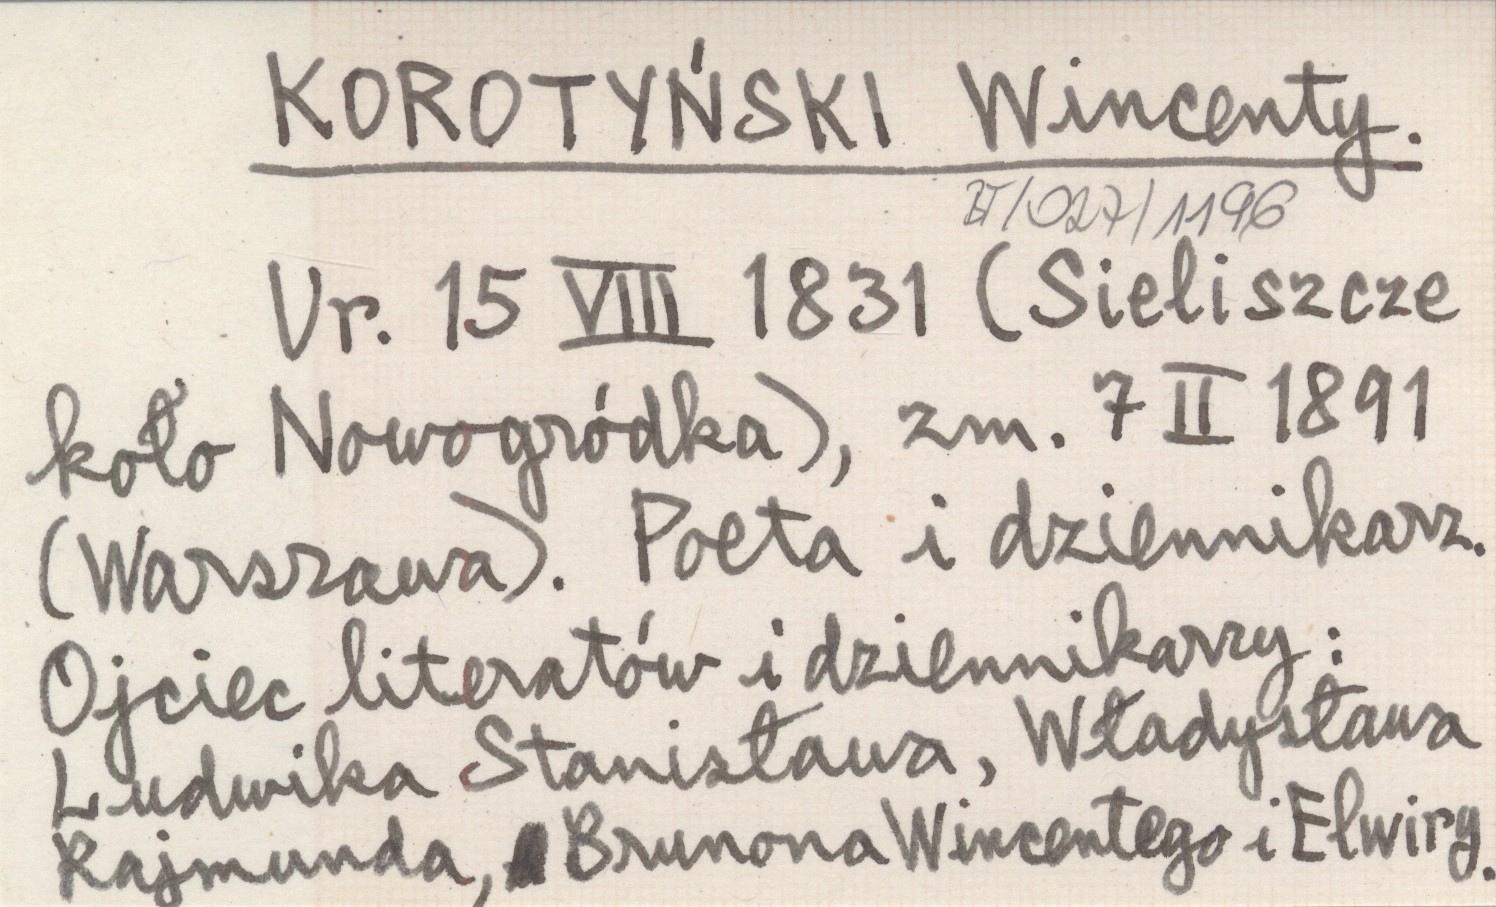 KOROTYŃSKI Wincenty.
BT/027/1196
Ur. 15 VIII 1831 (Sieliszcze
koło Nowogródka), zm. 7 II 1891
(Warszawa). Poeta i dziennikarz.
Ojciec literatów i dziennikarzy:
Ludwika Stanisława, Władysława
Rajmunda, Brunona Wincentego i Elwiry.